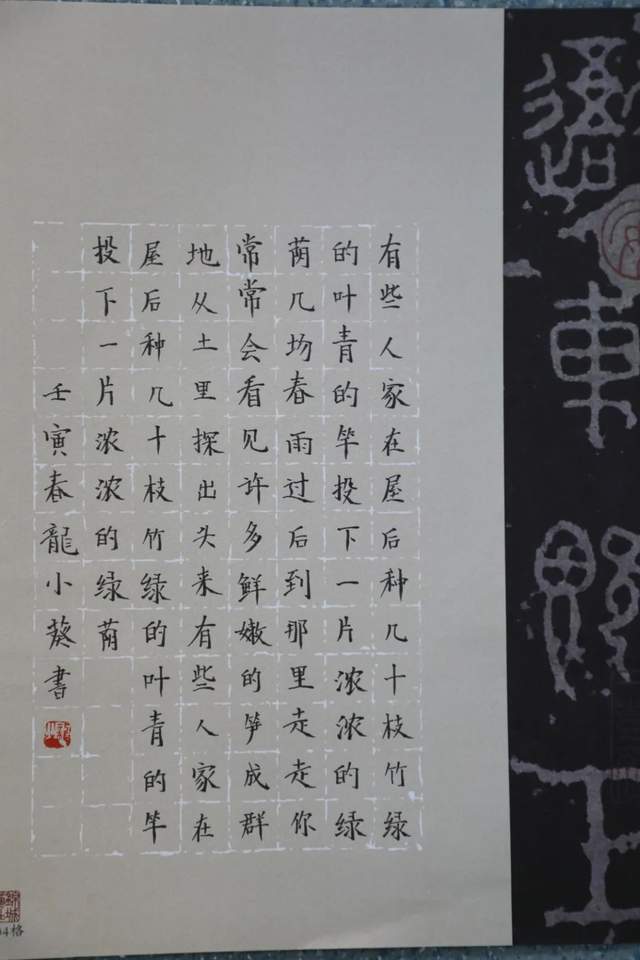 東
有些人家在屋后种几十枝竹绿
的叶青的竿投下一片浓浓的绿
荫几场春雨过后到那里走走你
常常会看见许多鲜嫩的笋成群
地从土里探出头来有些人家在
屋后种几十枝竹绿的叶青的竿
投下一片浓浓的绿荫
壬寅春龍小葵書
04格